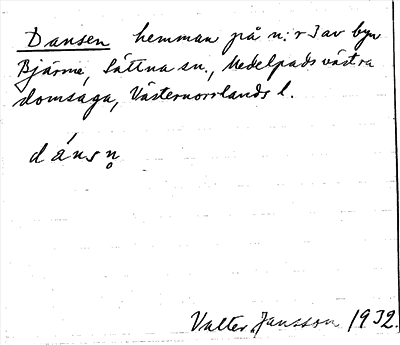 Dansen hemman på n:r 3 av byn
Bjärme, Sättna sn., Medelpads västra
domsaga, Västernorrlands l.
dánsn̥
Valter Jansson 1932.